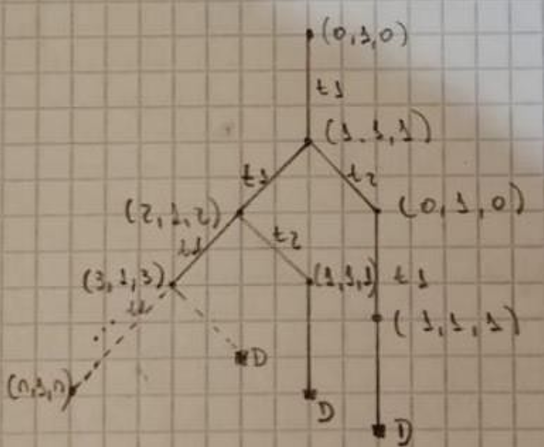 (0,1,0)
t1
(1.1,1)
t1 t2
(2,1,2) (0,1,0)
t1 t2
(3,1,3) (1,1,1) t1
t1 (1,1,1)
D
(n,1,n)
D
D